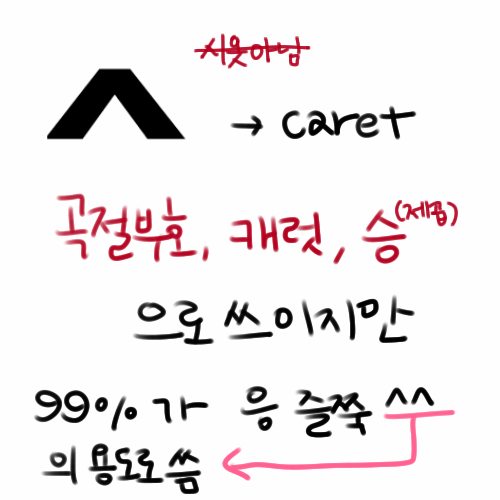 시옷아님
^ → caret
곡절부호, 캐럿, 승(제곱)
으로 쓰이지만
99%가 응 즐쭉 ^^
의 용도로 씀